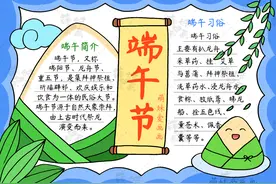 端午简介
端午节，又称
端阳节、龙舟节、
重五节，是集拜神祭祖、
祈福辟邪、欢庆娱乐和
饮食为一体的民俗大节。
端午节源于自然天象崇拜，
由上古时代祭龙
演变而来。
端午节
端午习俗
端午习俗
主要有扒龙舟、
采草药、挂艾草
与菖蒲、拜神祭祖、
洗草药水、浸龙舟水、
食粽、放纸鸢、睇龙
船、拴五色线、
佩香
囊等等。